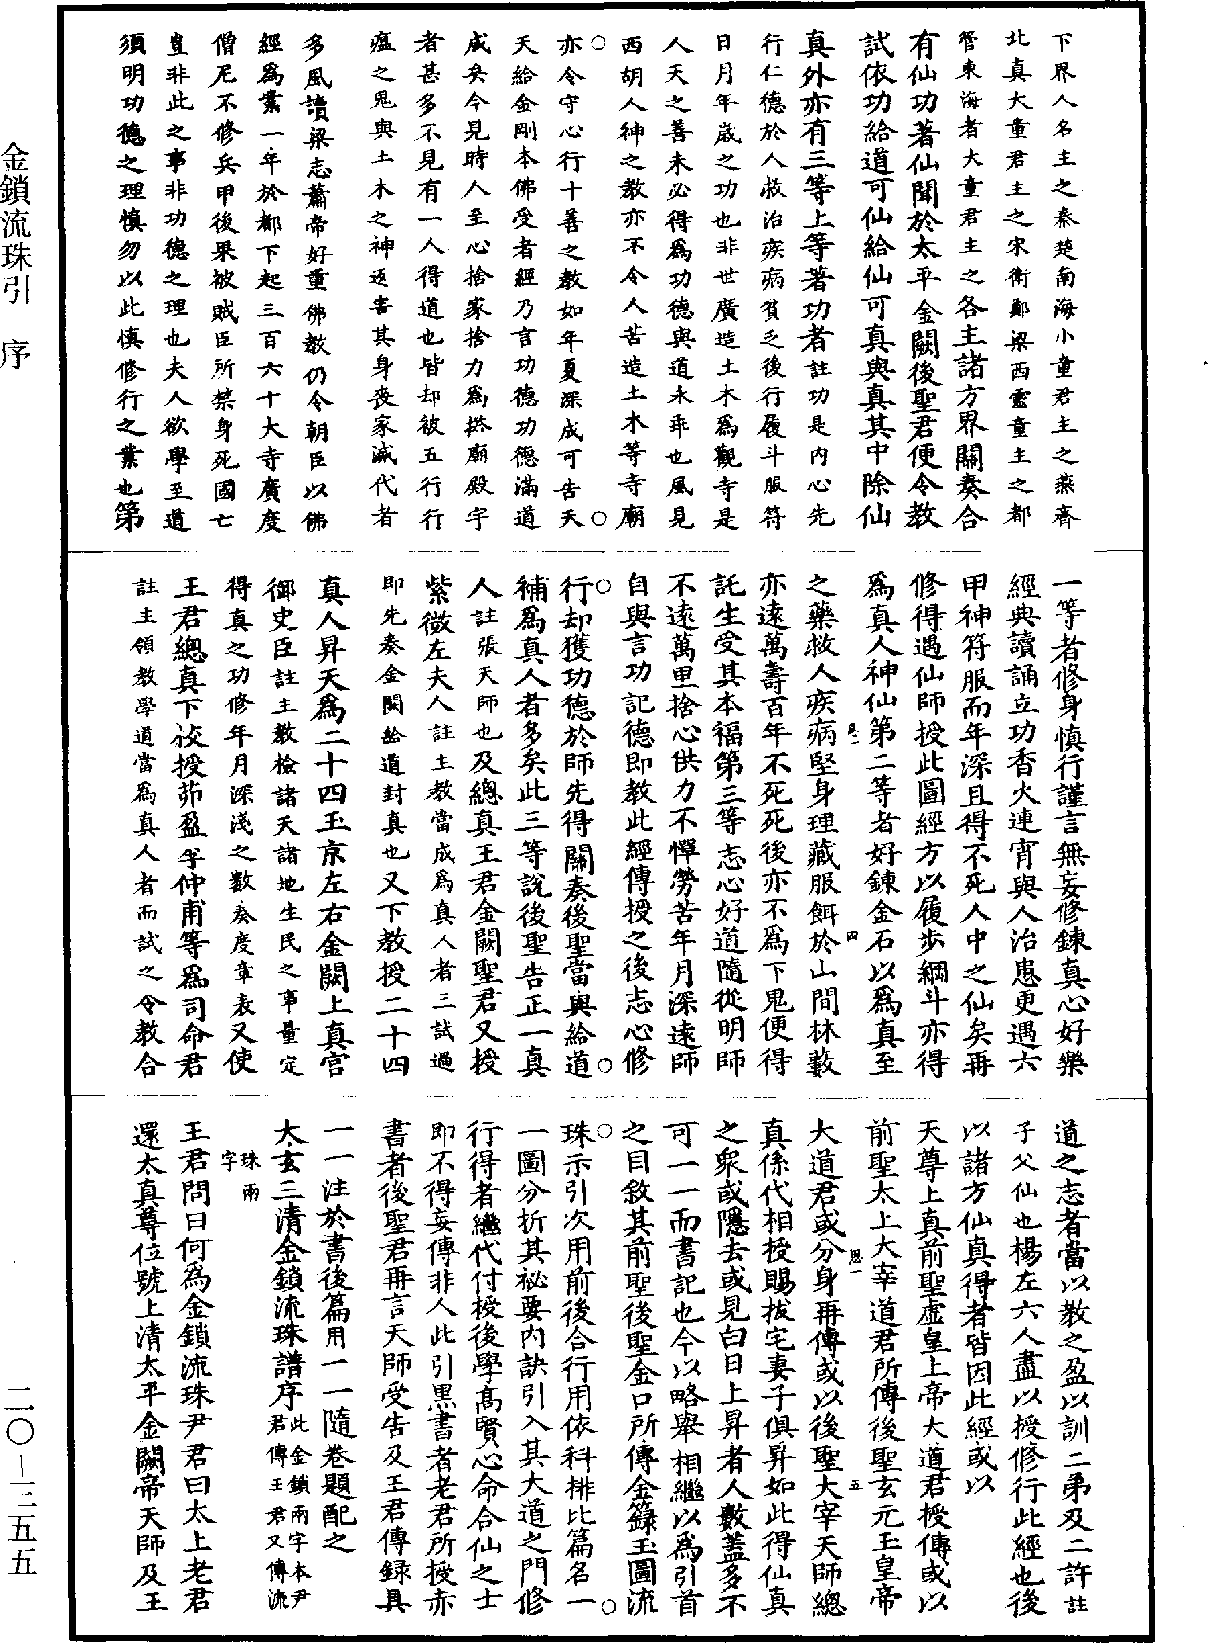 下界人名主之秦楚南海小童君主之燕齊
北真大童君主之宋衛鄭梁西靈童主之都
管東海者大童君主之各主諸方界關奏合
有仙功著仙聞於太平金闕後聖君便令教
試依功給道可仙給仙可真與真其中除仙
真外亦有三等上等著功者註功是內心先
行仁德於人救治疾病貧乏後行履斗服符
日月年歲之功也非世廣造土木為觀寺是
人天之善未必得為功德與道永乖也風見
西胡人神之教亦不令人苦造土木等寺廟
亦令守心行十善之教如年夏深成可告天
天給金剛本佛受者經乃言功德功德滿道
成矣今見時人至心捨家捨力為搭廟殿宇
者甚多不見有一人得道也皆却被五行行
瘟之鬼與土木之神返害其身喪家滅代者
多風讀梁志蕭帝好重佛教仍令朝臣以佛
經為業一年於都下起三百六十大寺廣度
僧尼不修兵甲後果被賊臣所禁身死國亡
豈非此之事非功德之理也夫人欲學至道
須明功德之理慎勿以此慎修行之業也第
一等者修身慎行謹言無妄修鍊真心好樂
經典讀誦立功香火連宵與人治患更遇六
甲神符服而年深且得不死人中之仙矣再
修得遇仙師授此圖經方以履步綱斗亦得
為真人神仙第二等者好鍊金石以為真至
之藥救人疾病堅身理藏服餌於山間林藪
亦遠萬壽百年不死死後亦不為下鬼便得
託生受其本福第三等志心好道隨從明師
不遠萬里捨心供力不憚勞苦年月深遠師
自與言功記德即教此經傳授之後志心修
行却獲功德於師先得關奏後聖當與給道
補為真人者多矣此三等說後聖告正一真
人註張天師也及總真王君金闕聖君又授
紫微左夫人註主教當成為真人者三試過
即先奏金闕給道封真也又下教授二十四
真人昇天為二十四玉京左右金闕上真宫
御史臣註主教檢諸天諸地生民之事量定
得真之功修年月深淺之數奏度章表又使
王君總真下校授茆盈季仲甫等為司命君
註主領教學道當為真人者而試之令教合
道之志者當以教之盈以訓二弟及二許註
子父仙也楊左六人盡以授修行此經也後
以諸方仙真得者皆因此經或以
天尊上真前聖虛皇上帝大道君授傳或以
前聖太上大宰道君所傳後聖玄元玉皇帝
大道君或分身再傳或以後聖大宰天師總
真係代相授賜拔宅妻子俱昇如此得仙真
之衆或隱去或見白日上昇者人數蓋多不
可一一而書記也今以略舉相繼以為引首
之目敘其前聖後聖金口所傳金籙玉圖流
珠示引次用前後合行用依科排比篇名一
一圖分折其祕要内訣引入其大道之門修
行得者繼代付授後學高賢心命合仙之士
即不得妄傳非人此引黑書者老君所授亦
書者後聖君再言天師受告及王君傳録具
一一注於書後篇用一一隨卷題配之
太玄三清金鎖流珠譜序此金鎖兩字本尹君傳王君又傳流
珠兩字
王君問曰何為金鎖流珠尹君曰太上老君
還太真尊位號上清太平金闕帝天師及王
金鎖流珠引 序
二〇—三五五